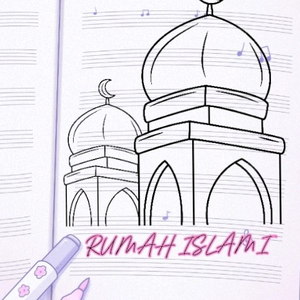 RUMAH ISLAMI